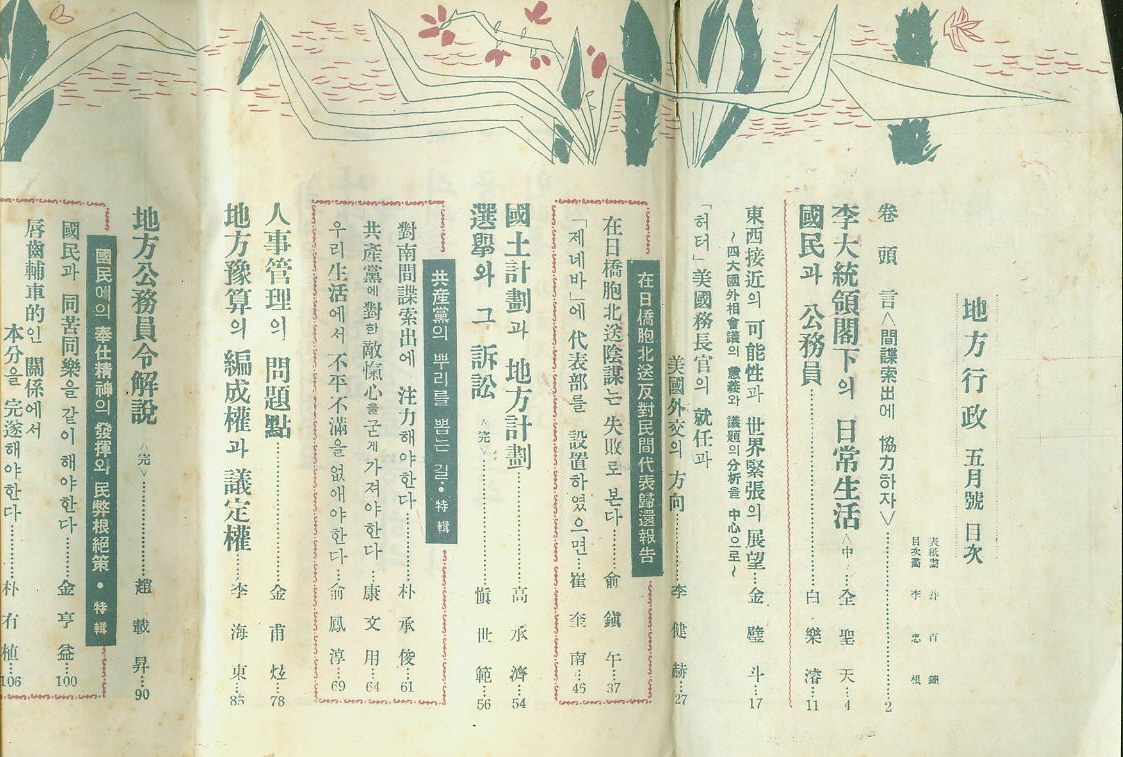 地方行政 五月號 目次
表紙畵 許 百 鍊
目次畵 李 忠 根
卷頭言<間諜索出에 協力하자>…2
李大統領閣下의 日常生活<中>…全聖天…4
國民과 公務員…白樂濬…11
東西接近의 可能性과 世界緊張의 展望…金壁斗…17
~四大國外相會議의 意義와 議題의 分析을 中心으로~
「허터」美國務長官의 就任과
美國外交의 方向…李健赫…27
在日僑胞北送反對民間代表歸還報告
在日僑胞北送陰謀는 失敗로 본다…俞鎭午…37
「제네바」에 代表部를 設置하였으면…崔奎南…46
國土計劃과 地方計劃…高承濟…54
選擧와 그 訴訟<完>…愼世範…56
共產黨의 뿌리를 뽑는 길·特輯
對南間諜索出에 注力해야한다…朴承俊…61
共產黨에 對한 敵愾心을 굳게 가져야한다…康文用…64
우리生活에서 不平不滿을 없애야한다…俞鳳淳…69
人事管理의 問題點…金甫炫…78
地方豫算의 編成權과 議定權…李海東…85
地方公務員令解說<完>…趙載昇…90
國民에의 奉仕精神의 發揮와 民弊根絕策·特輯
國民과 同苦同樂을 같이 해야한다…金亨益…100
唇齒輔車的인 關係에서
本分을 完遂해야한다…朴右植…106